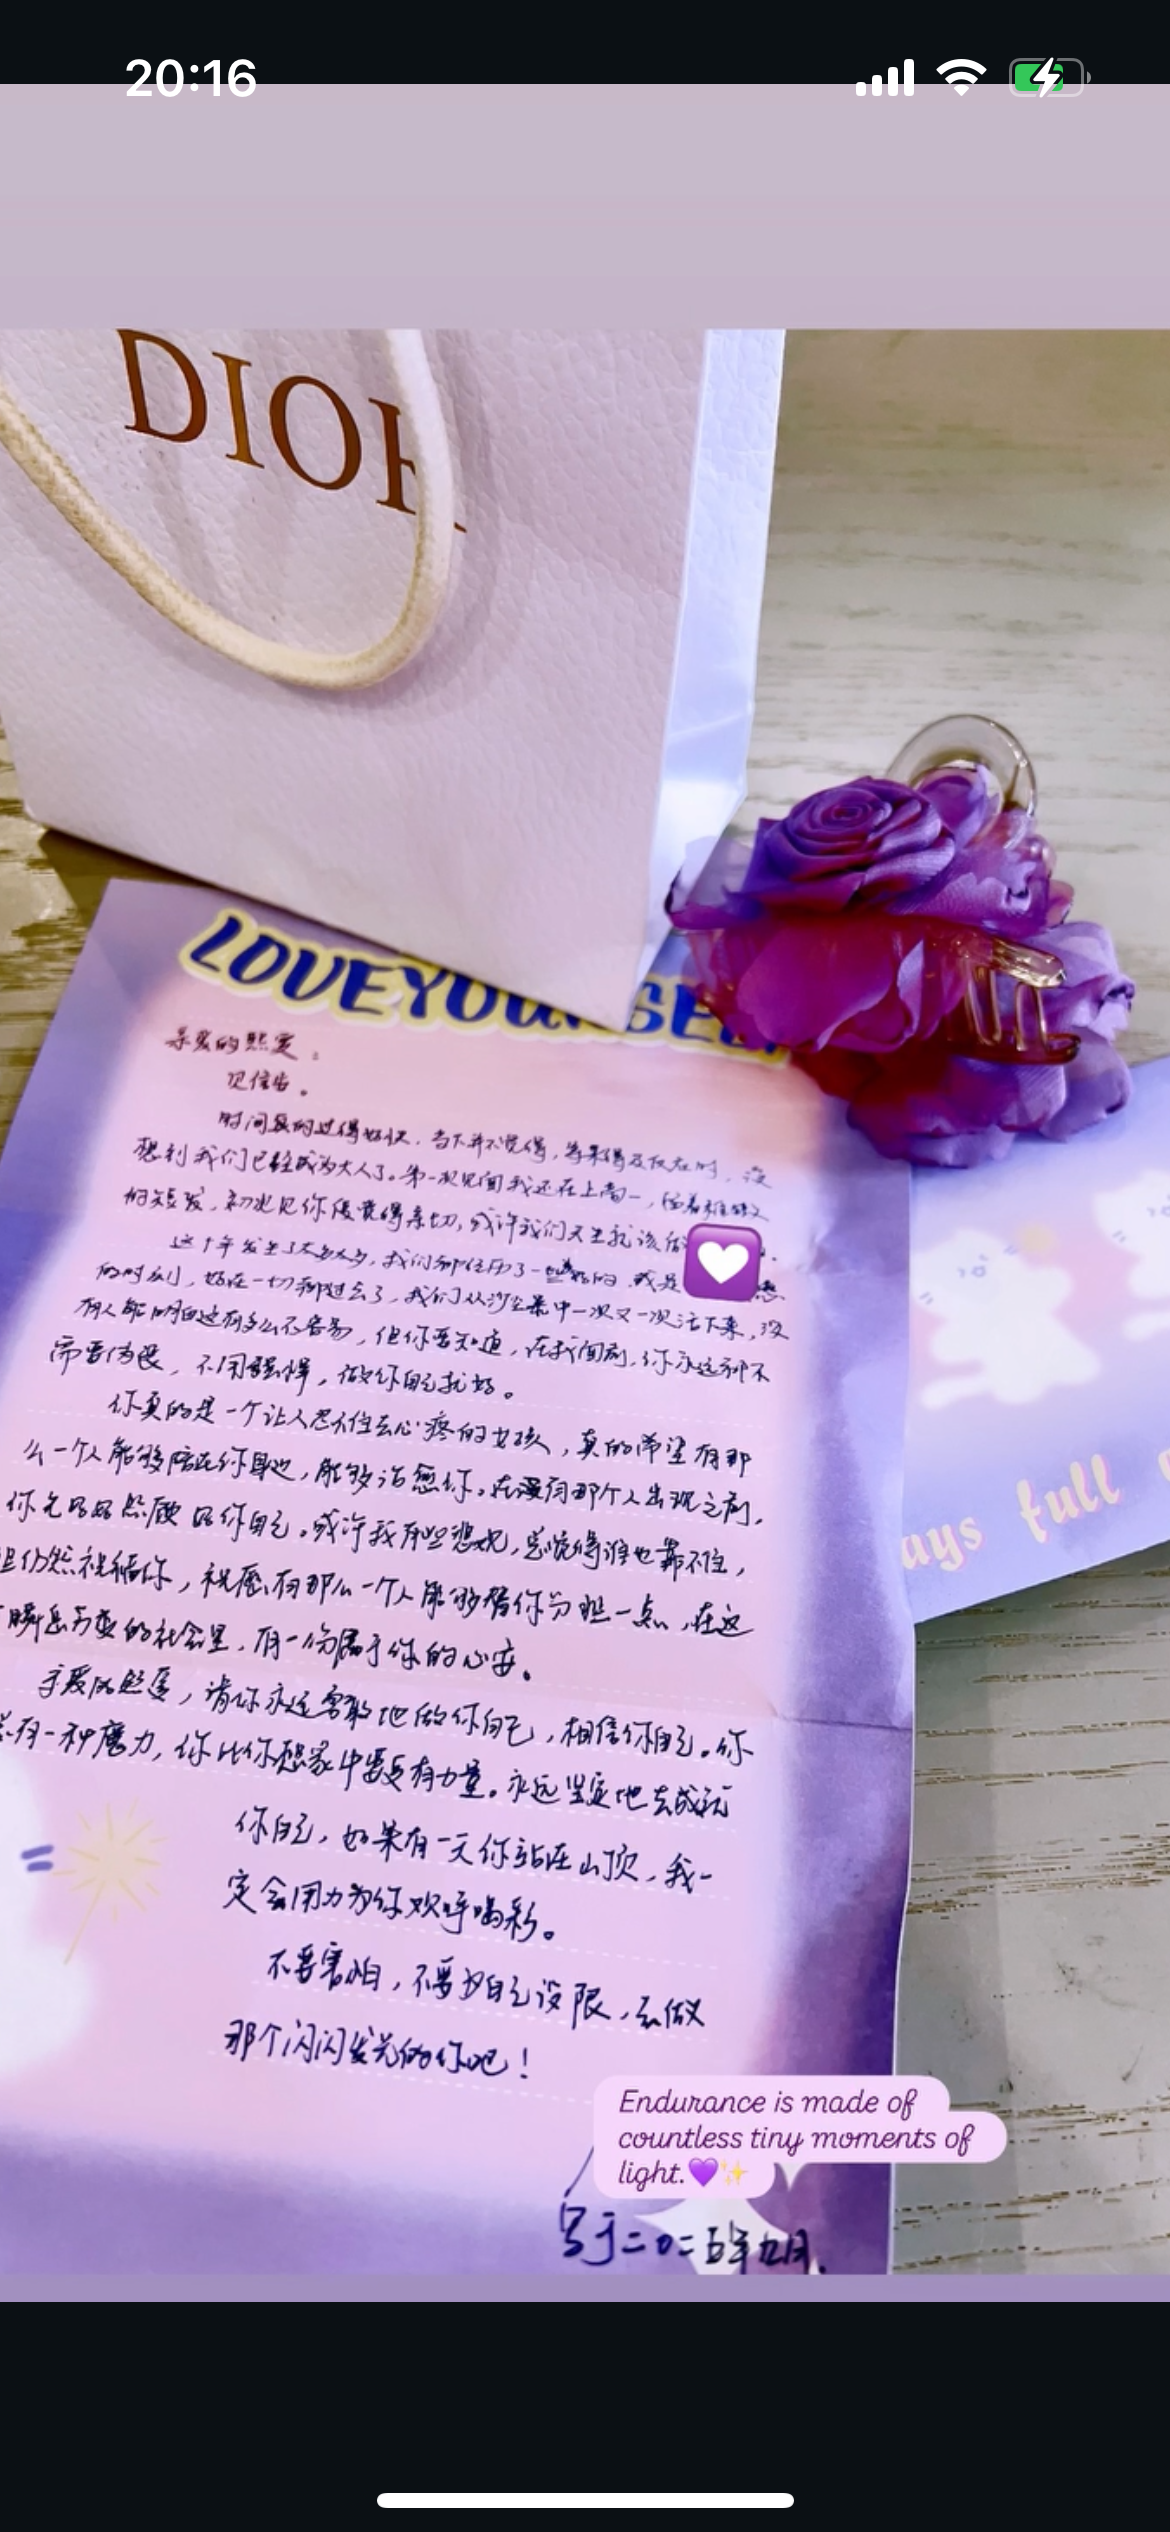 20:16
DIOR
LOVE YOURSELF
亲爱的熙雯：
见信安。
时间真的过得好快，当下并不觉得，等来得及反应时，没
想到我们已经成为大人了。第一次见面我还在上高一，留着
的短发，初次见你便觉得亲切，或许我们天生就该
这个年发生了太多太多，我们都经历了一些的，或是
的时刻，好在一切都过去了，我们从沙尘暴中一次又一次活下来，没
有人能明白这有多么不容易，但你要知道，在我面前，你永远都不
需要伪装，不用强悍，做你自己就好。
你真的是一个让人忍不住去心疼的女孩，真的希望有那
么一个人能够陪在你身边，能够治愈你。在没有那个人出现之前，
你先好好照顾好你自己。或许我有些悲观，总觉得谁也靠不住，
但仍然祝福你，祝愿有那么一个人能够替你分担一点，在这
瞬息万变的社会里，有一份属于你的心安。
亲爱的熙雯，请你永远勇敢地做你自己，相信你自己。你
总有一种魔力，你比你想象中要更有力量。永远坚定地去成就
你自己，如果有一天你站在山顶，我一
定会用力为你欢呼喝彩。
不要害怕，不要为自己设限，去做
那个闪闪发光的你吧！
ays full
Endurance is made of
countless tiny moments of
light.💜✨
写于二0二五年九月.